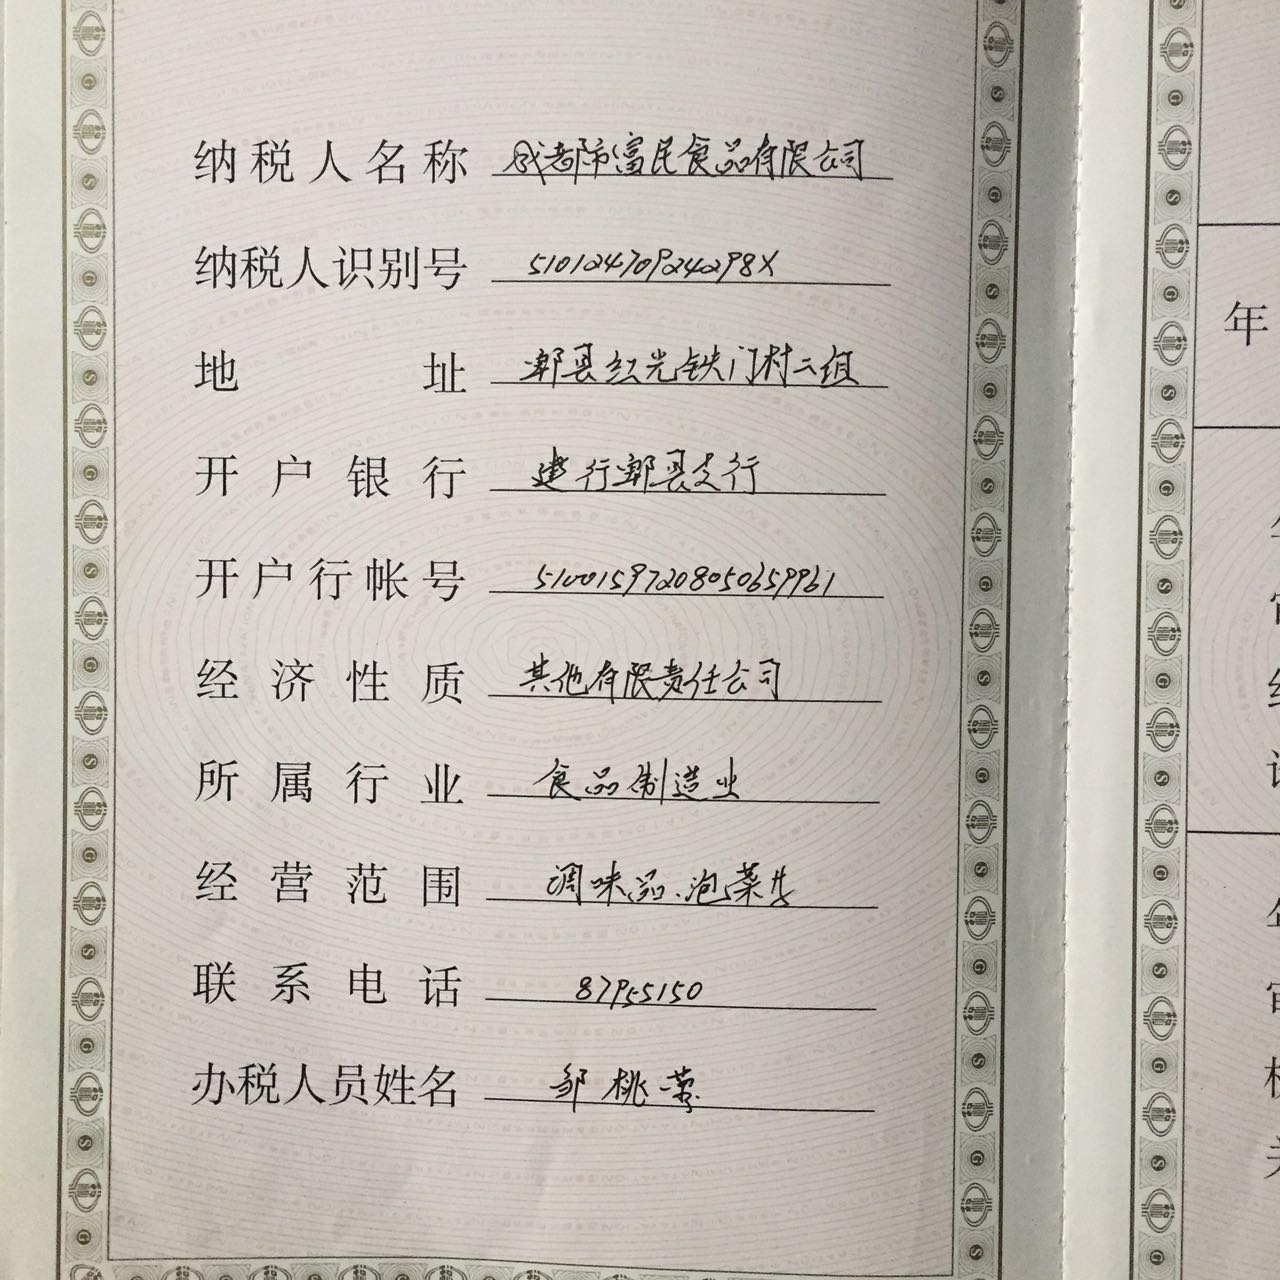 纳税人名称 成都市富民食品有限公司
纳税人识别号 51012470924298X
地址 郫县红光铁门村二组
开户银行 建行郫县支行
开户行帐号 51001597208050659961
经济性质 其他有限责任公司
所属行业 食品制造业
经营范围 调味品、泡菜生
联系电话 87955150
办税人员姓名 邹桃蓉
年